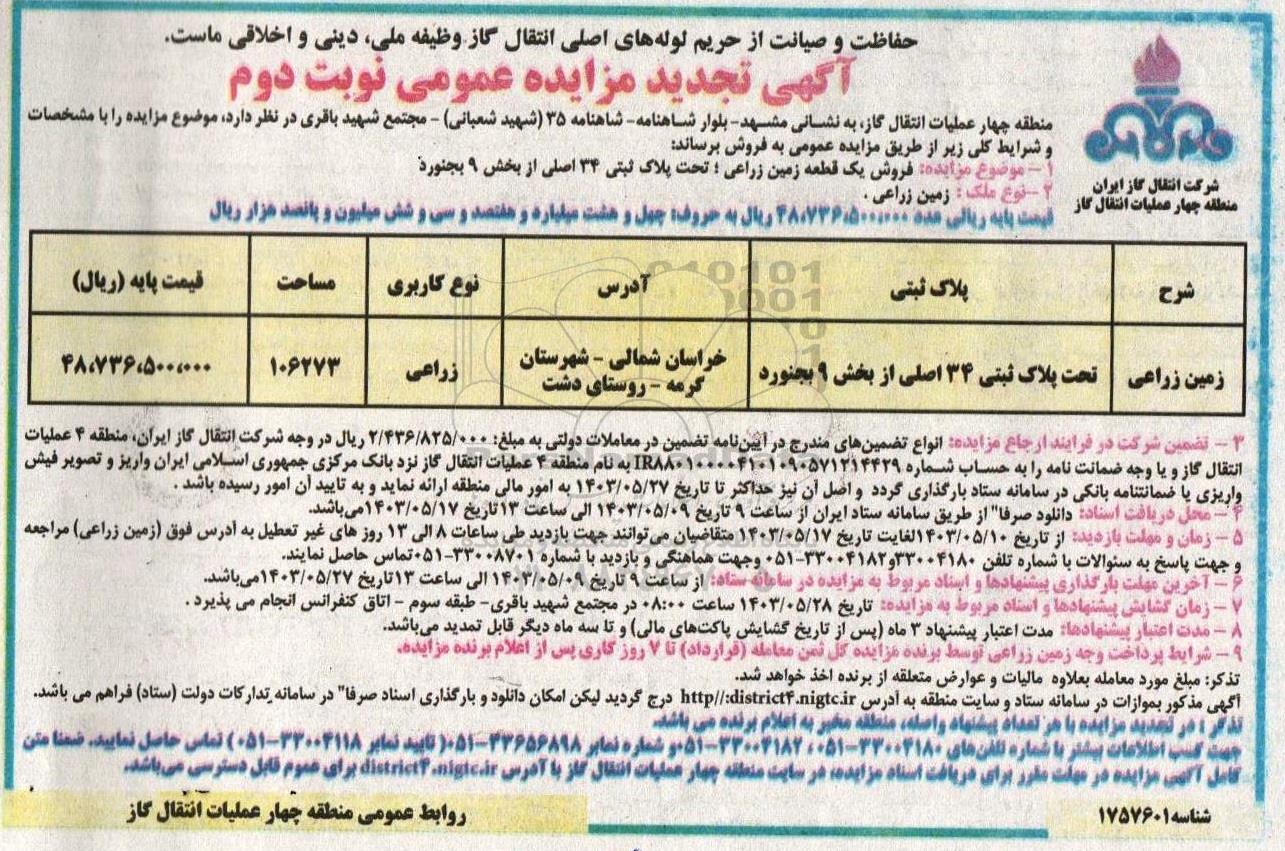 حفاظت و صیانت از حریم لوله‌های اصلی انتقال گاز وظیفه ملی، دینی و اخلاقی ماست.
آگهی تجدید مزایده عمومی نوبت دوم
شرکت انتقال گاز ایران
منطقه چهار عملیات انتقال گاز
منطقه چهار عملیات انتقال گاز، به نشانی مشهد- بلوار شاهنامه- شاهنامه ۳۵ (شهید شعبانی) - مجتمع شهید باقری در نظر دارد، موضوع مزایده را با مشخصات
و شرایط کلی زیر از طریق مزایده عمومی به فروش برساند:
۱ - موضوع مزایده: فروش یک قطعه زمین زراعی ؛ تحت پلاک ثبتی ۳۴ اصلی از بخش ۹ بجنورد
۲ - نوع ملک : زمین زراعی .
قیمت پایه ریالی عدد ۴۸،۷۳۶،۵۰۰،۰۰۰ ریال به حروف: چهل و هشت میلیارد و هفتصد و سی و شش میلیون و پانصد هزار ریال
شرح پلاک ثبتی آدرس نوع کاربری مساحت قیمت پایه (ریال)
زمین زراعی تحت پلاک ثبتی ۳۴ اصلی از بخش ۹ بجنورد خراسان شمالی - شهرستان گرمه - روستای دشت زراعی ۱۰۶۲۷۳ ۴۸،۷۳۶،۵۰۰،۰۰۰
۳ - تضمین شرکت در فرایند ارجاع مزایده: انواع تضمین‌های مندرج در آیین‌نامه تضمین در معاملات دولتی به مبلغ: ۲/۴۳۶/۸۲۵/۰۰۰ ریال در وجه شرکت انتقال گاز ایران، منطقه ۴ عملیات
انتقال گاز و یا وجه ضمانت نامه را به حساب شماره IR۸۸۰۱۰۰۰۰۴۱۰۱۰۹۰۵۷۱۲۱۴۴۲۹ به نام منطقه ۴ عملیات انتقال گاز نزد بانک مرکزی جمهوری اسلامی ایران واریز و تصویر فیش
واریزی یا ضمانتنامه بانکی در سامانه ستاد بارگذاری گردد و اصل آن نیز حداکثر تا تاریخ ۱۴۰۳/۰۵/۲۷ به امور مالی منطقه ارائه نماید و به تایید آن امور رسیده باشد .
۴ - محل دریافت اسناد: دانلود صرفا" از طریق سامانه ستاد ایران از ساعت ۹ تاریخ ۱۴۰۳/۰۵/۰۹ الی ساعت ۱۳ تاریخ ۱۴۰۳/۰۵/۱۷ می‌باشد.
۵ - زمان و مهلت بازدید: از تاریخ ۱۴۰۳/۰۵/۱۰ لغایت تاریخ ۱۴۰۳/۰۵/۱۷ متقاضیان می‌توانند جهت بازدید طی ساعات ۸ الی ۱۳ روز های غیر تعطیل به آدرس فوق (زمین زراعی) مراجعه
و جهت پاسخ به سئوالات با شماره تلفن ۳۳۰۰۴۱۸۰ و ۳۳۰۰۴۱۸۲-۰۵۱ وجهت هماهنگی و بازدید با شماره ۳۳۰۰۸۷۰۱-۰۵۱ تماس حاصل نمایند.
۶ - آخرین مهلت بارگذاری پیشنهادها و اسناد مربوط به مزایده در سامانه ستاد: از ساعت ۹ تاریخ ۱۴۰۳/۰۵/۰۹ الی ساعت ۱۳ تاریخ ۱۴۰۳/۰۵/۲۷ می‌باشد.
۷ - زمان گشایش پیشنهادها و اسناد مربوط به مزایده: تاریخ ۱۴۰۳/۰۵/۲۸ ساعت ۰۸:۰۰ در مجتمع شهید باقری- طبقه سوم - اتاق کنفرانس انجام می پذیرد .
۸ - مدت اعتبار پیشنهادها: مدت اعتبار پیشنهاد ۳ ماه (پس از تاریخ گشایش پاکت‌های مالی) و تا سه ماه دیگر قابل تمدید می‌باشد.
۹ - شرایط پرداخت وجه زمین زراعی توسط برنده مزایده کل ثمن معامله (قرارداد) تا ۷ روز کاری پس از اعلام برنده مزایده.
تذکر: مبلغ مورد معامله بعلاوه مالیات و عوارض متعلقه از برنده اخذ خواهد شد.
آگهی مذکور بموازات در سامانه ستاد و سایت منطقه به آدرس http//:district۴.nigtc.ir درج گردید لیکن امکان دانلود و بارگذاری اسناد صرفا" در سامانه تدارکات دولت (ستاد) فراهم می باشد.
تذکر : در تجدید مزایده با هر تعداد پیشنهاد واصله، منطقه مخیر به اعلام برنده می باشد.
جهت کسب اطلاعات بیشتر با شماره تلفن‌های ۳۳۰۰۴۱۸۰-۰۵۱، ۳۳۰۰۴۱۸۲-۰۵۱ و شماره نمابر ۴۳۶۵۶۸۹۸-۰۵۱ (تایید نمابر ۳۳۰۰۴۱۱۸-۰۵۱) تماس حاصل نمایید. ضمنا متن
کامل آگهی مزایده در مهلت مقرر برای دریافت اسناد مزایده، در سایت منطقه چهار عملیات انتقال گاز با آدرس district۴.nigtc.ir برای عموم قابل دسترسی می‌باشد.
شناسه ۱۷۵۷۶۰۱
روابط عمومی منطقه چهار عملیات انتقال گاز